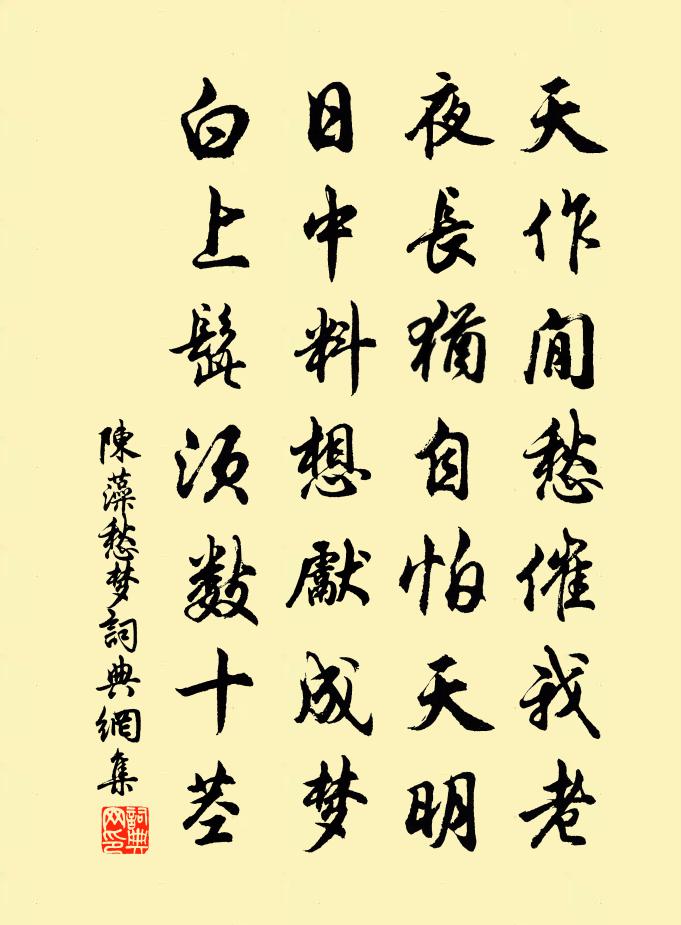 天作閒愁催我老
夜長猶自怕天明
日中料想獻成梦
白上髭须数十茎
陳藻愁梦詞典網集
詞典网印